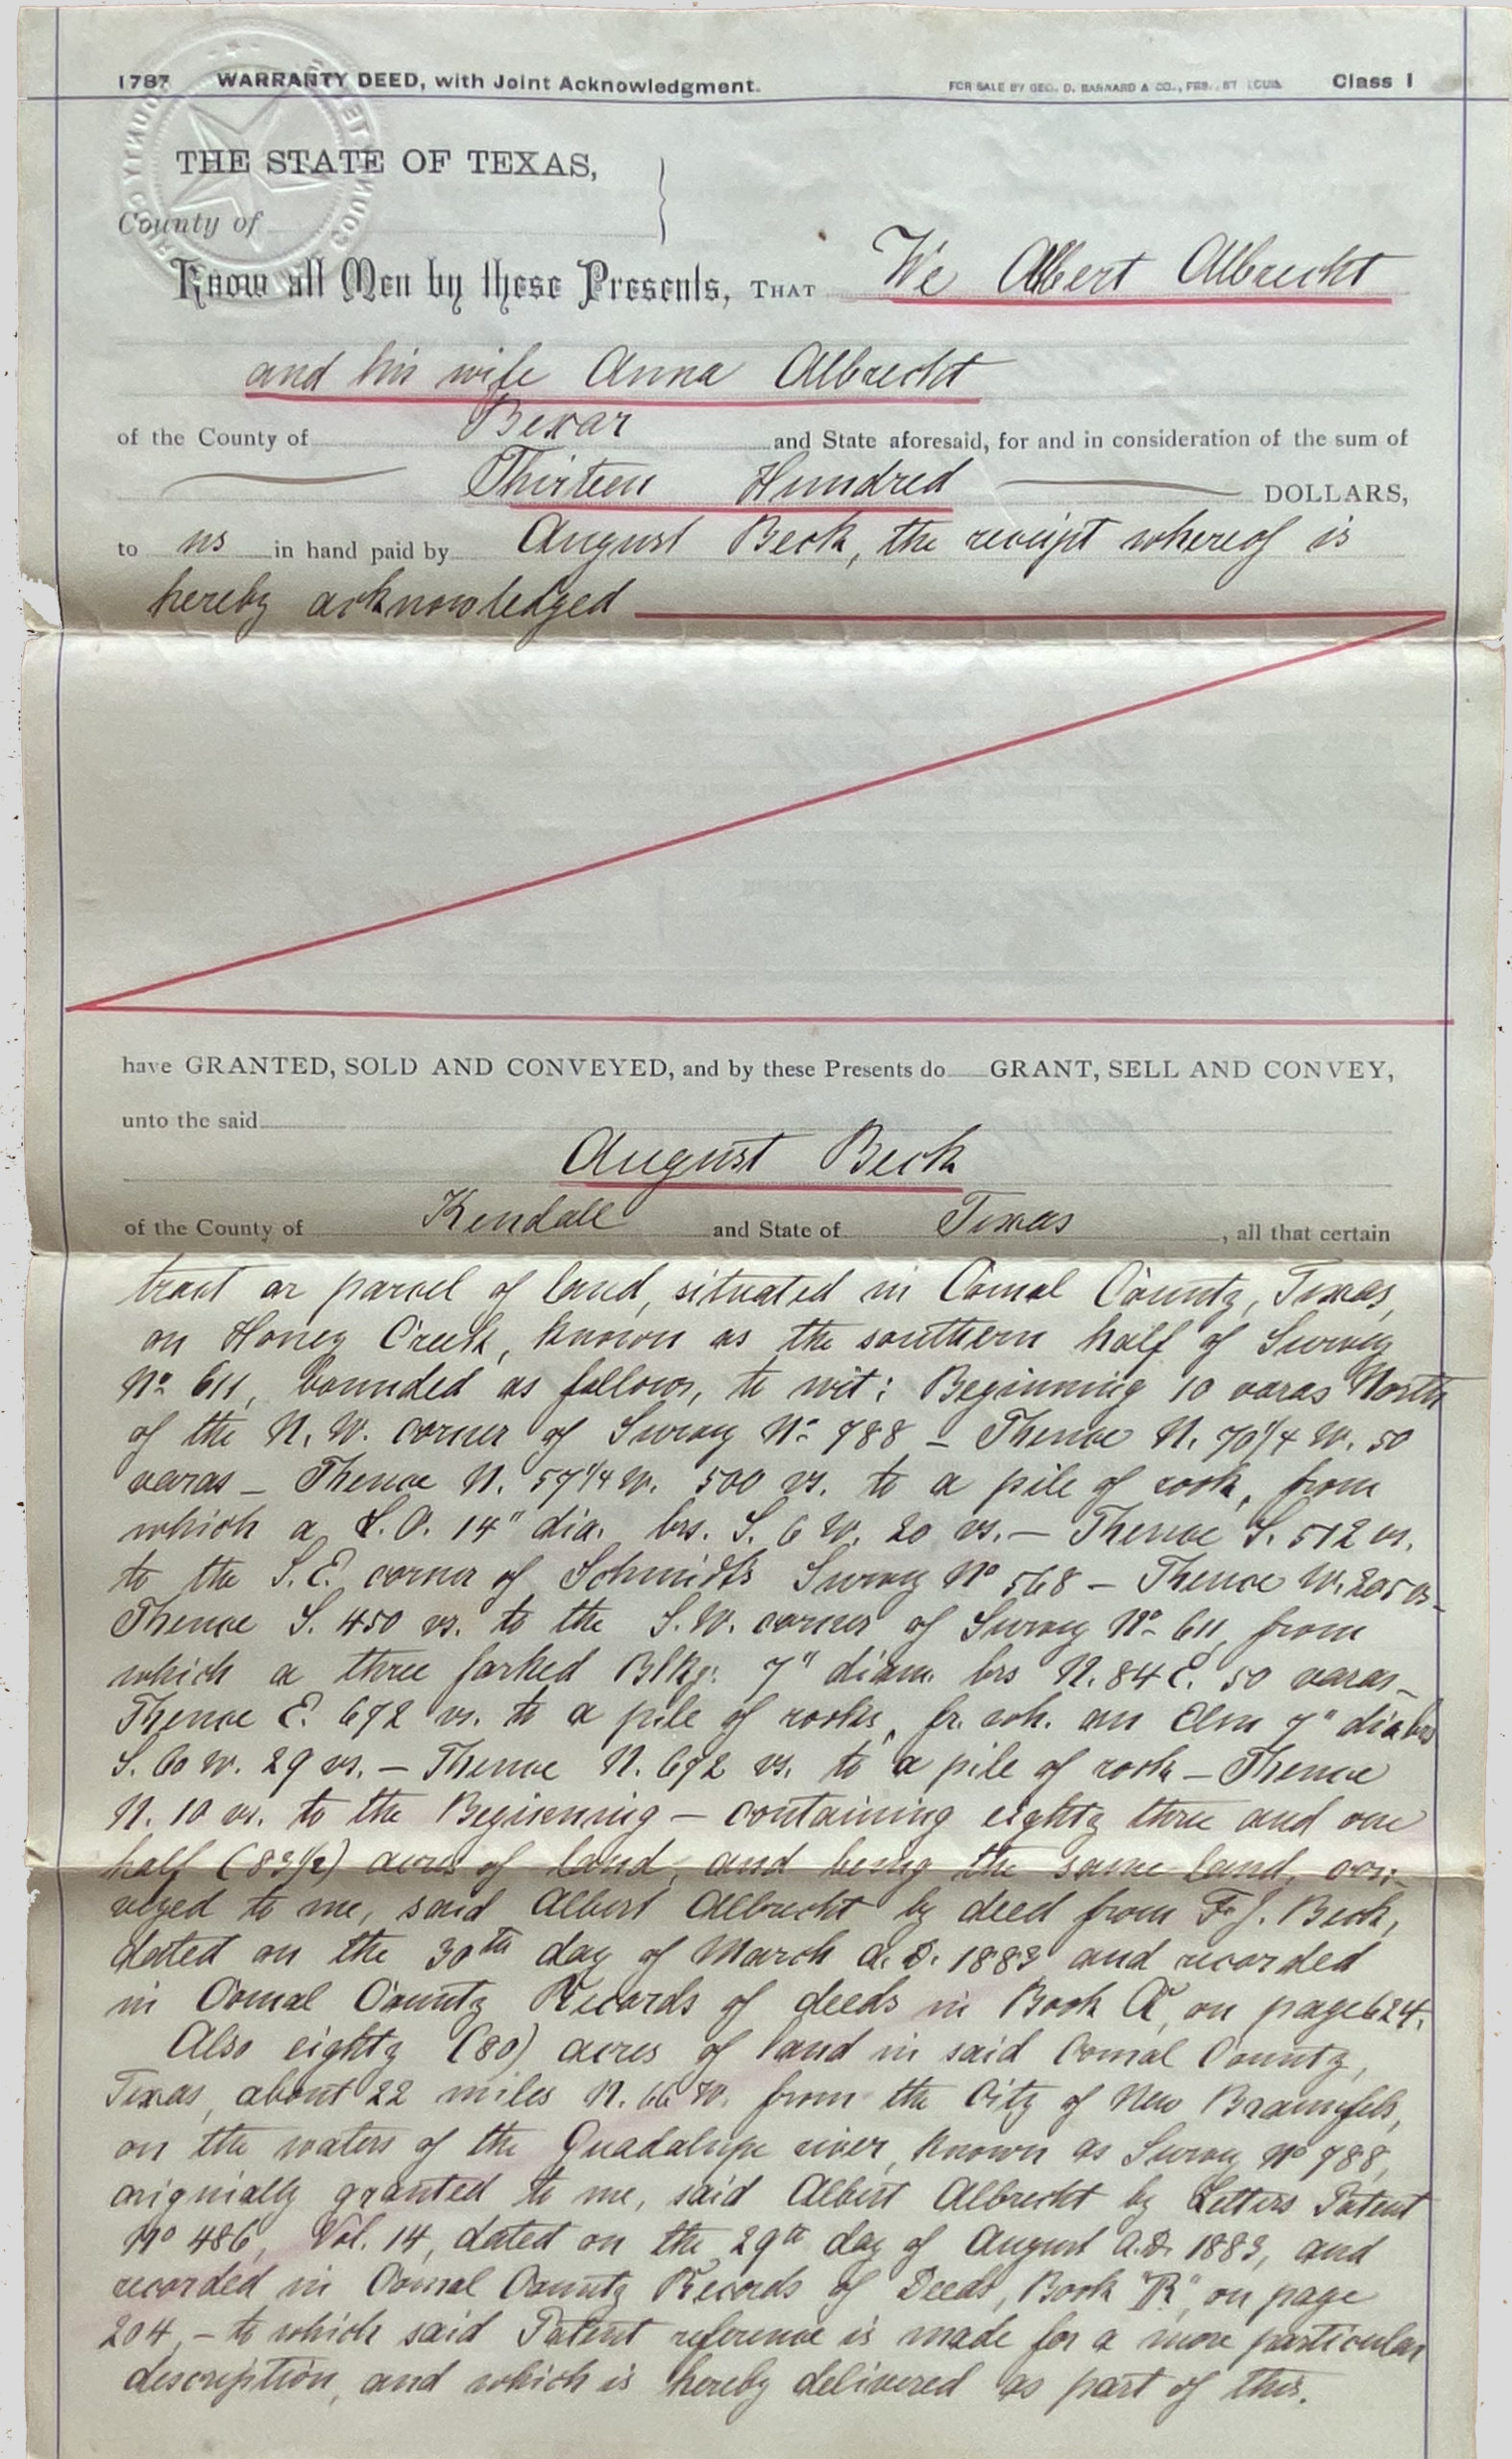 1787 WARRANTY DEED, with Joint Acknowledgment. FOR SALE BY GEO. D. BARNARD & CO., PRS., ST LOUIS Class 1
THE STATE OF TEXAS,
County of
Know all Men by these Presents, THAT We Albert Albrecht
and his wife Anna Albrecht
of the County of Bexar and State aforesaid, for and in consideration of the sum of
Thirteen Hundred DOLLARS,
to us in hand paid by August Beck, the receipt whereof is
hereby acknowledged
have GRANTED, SOLD AND CONVEYED, and by these Presents do GRANT, SELL AND CONVEY,
unto the said
August Beck
of the County of Kendall and State of Texas, all that certain
tract or parcel of land, situated in Comal County, Texas,
on Honey Creek, known as the southern half of Survey
No 611, bounded as follows, to wit: Beginning 10 varas North
of the N. W. corner of Survey No 788 – Thence N. 70 1/4 W. 50
varas – Thence N. 57 1/4 W. 500 vs. to a pile of rock, from
which a L.O. 14" dia. brs. S. 6 W. 20 vs. – Thence S. 512 vs.
to the S.E. corner of Schmidts Survey No 568 – Thence W. 205 vs –
Thence S. 450 vs. to the S.W. corner of Survey No 611, from
which a three forked Blkg. 7" diam. brs N. 84 E. 50 varas –
Thence E. 672 vs. to a pile of rocks, fr. wh. an Elm 7" dia brs
S. 60 W. 29 vs. – Thence N. 692 vs. to a pile of rock – Thence
N. 10 vs. to the Beginning – containing eighty three and one
half (83 1/2) acres of land, and being the same land, con-
veyed to me, said Albert Albrecht by deed from F. J. Beck,
dated on the 30th day of March A. D. 1883 and recorded
in Comal County Records of deeds in Book Q, on page 624.
Also eighty (80) acres of land in said Comal County,
Texas, about 22 miles N. 66 W. from the City of New Braunfels,
on the waters of the Guadalupe river, known as Survey No 788,
originally granted to me, said Albert Albrecht by Letters Patent
No 486, Vol. 14, dated on the 29th day of August A.D. 1883, and
recorded in Comal County Records of Deeds, Book "R", on page
204, – to which said Patent reference is made for a more particular
description, and which is hereby delivered as part of this.